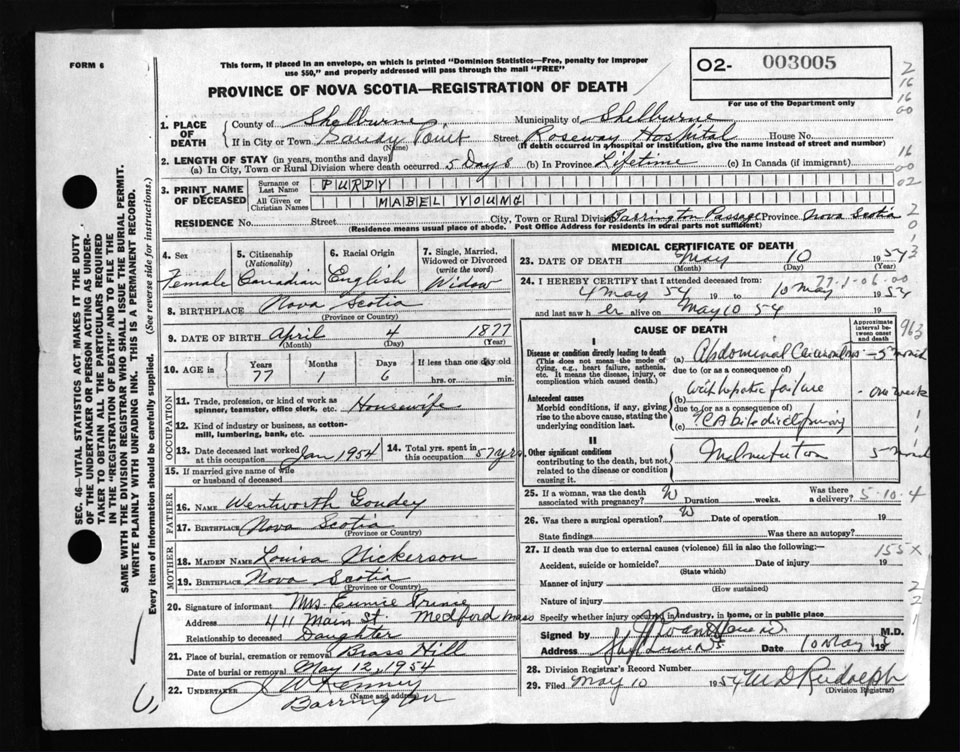 FORM 6
This form, if placed in an envelope, on which is printed "Dominion Statistics—Free, penalty for improper
use $50," and properly addressed will pass through the mail "FREE"
O2- 003005
For use of the Department only
PROVINCE OF NOVA SCOTIA—REGISTRATION OF DEATH
1. PLACE OF DEATH
County of Shelburne Municipality of Shelburne
If in City or Town Sandy Point Street Roseway Hospital House No.
(Name) (If death occurred in a hospital or institution, give the name instead of street and number)
2. LENGTH OF STAY (in years, months and days)
(a) In City, Town or Rural Division where death occurred 5 Days (b) In Province Lifetime (c) In Canada (if immigrant)
3. PRINT NAME OF DECEASED
Surname or Last Name PURDY
All Given or Christian Names MABEL YOUNG
RESIDENCE No. Street City, Town or Rural Division Barrington Passage Province Nova Scotia
(Residence means usual place of abode. Post Office Address for residents in rural parts not sufficient)
4. Sex Female
5. Citizenship (Nationality) Canadian
6. Racial Origin English
7. Single, Married, Widowed or Divorced (write the word) Widow
8. BIRTHPLACE Nova Scotia
(Province or Country)
9. DATE OF BIRTH April 4 1877
(Month) (Day) (Year)
10. AGE in Years 77 Months 1 Days 6 If less than one day old hrs. or min.
OCCUPATION
11. Trade, profession, or kind of work as spinner, teamster, office clerk, etc. Housewife
12. Kind of industry or business, as cotton-mill, lumbering, bank, etc.
13. Date deceased last worked at this occupation Jan 1954
14. Total yrs. spent in this occupation 57 yrs.
15. If married give name of wife or husband of deceased
FATHER
16. NAME Wentworth Goudey
17. BIRTHPLACE Nova Scotia
(Province or Country)
MOTHER
18. MAIDEN NAME Louisa Nickerson
19. BIRTHPLACE Nova Scotia
(Province or Country)
20. Signature of informant Mrs. Eunice
Address 411 Main St. Medford Mass
Relationship to deceased Daughter
21. Place of burial, cremation or removal Brass Hill
Date of burial or removal May 12, 1954
22. UNDERTAKER Kenney
(Name and Address)
Barrington
MEDICAL CERTIFICATE OF DEATH
23. DATE OF DEATH May 10 1954
(Month) (Day) (Year)
24. I HEREBY CERTIFY that I attended deceased from:
4 May 54 19 to 10 May 1954
and last saw her alive on May 10 54 19
CAUSE OF DEATH
Approximate interval between onset and death
I
Disease or condition directly leading to death (a) Abdominal
This does not mean the mode of dying, e.g., heart failure, asthenia, etc. It means the disease, injury, or complication which caused death.)
due to (or as a consequence of)
Antecedent causes (b) with hepatic failure one week
Morbid conditions, if any, giving rise to the above cause, stating the underlying condition last.
due to (or as a consequence of)
(c)
II
Other significant conditions contributing to the death, but not related to the disease or condition causing it.
25. If a woman, was the death associated with pregnancy? Duration weeks. Was there a delivery?
5-10-4
26. Was there a surgical operation? Date of operation 19
State findings Was there an autopsy?
27. If death was due to external causes (violence) fill in also the following:
155X
Accident, suicide or homicide? Date of injury 19
(State which)
Manner of injury
(How sustained)
Nature of injury
Specify whether injury occurred in industry, in home, or in public place
Signed by M.D.
Date 10 May 19
28. Division Registrar's Record Number
29. Filed May 10 1954 M D Rudolph
(Division Registrar)
SEC. 46—VITAL STATISTICS ACT MAKES IT THE DUTY
OF THE UNDERTAKER OR PERSON ACTING AS UNDER-
TAKER TO OBTAIN ALL THE PARTICULARS REQUIRED
IN THE "REGISTRATION OF DEATH" AND TO FILE THE
SAME WITH THE DIVISION REGISTRAR WHO SHALL ISSUE THE BURIAL PERMIT.
WRITE PLAINLY WITH UNFADING INK. THIS IS A PERMANENT RECORD.
Every item of information should be carefully supplied. (See reverse side for instructions.)